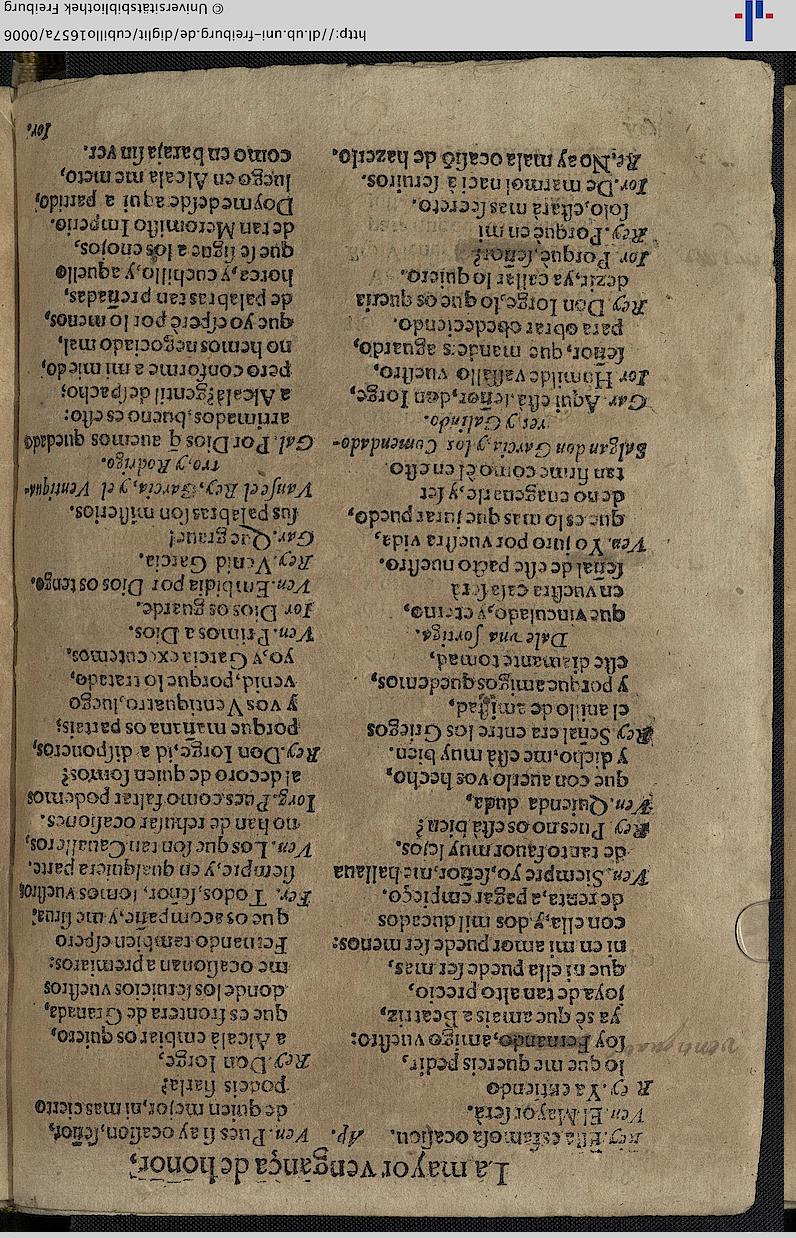 La mayor vengança de honor,
Rey. Ella es famosa ocasion. Ap.
Ven. El Mayor serà.
Rey. Ya entiendo
lo que me quereis pedir,
soy Fernando, amigo vuestro:
ya sè que amais a Beatriz,
joya de tan alto precio,
que ni ella puede ser mas,
ni en mi amor puede ser menos:
con ella, y dos mil ducados
de renta, a pagar empieço.
Ven. Siempre yo, señor, me hallaua
de tanto fauor muy lejos.
Rey Pues no os està bien?
Ven. Quien da duda,
que con auerlo vos hecho,
y dicho, me està muy bien.
Rey Señal era entre los Griegos
el anillo de amistad,
y porque amigos quedemos,
este diamante tomad,
Dale vna sortiga.
que vinculado, y eterno,
en vuestra casa serà
señal de este pacto nuestro.
Ven. Yo juro por vuestra vida,
que es lo mas que jurar puedo,
de no enagenarle, y ser
tan firme como èl en esto
Salgan don Garcia, y los Comendado-
res y Galindo.
Gar. Aqui està, señor, don Iorge,
Ior. Humilde vassallo vuestro,
señor, que mandeis aguardo,
para obrar obedeciendo.
Rey Don Iorge, lo que os queria
dezir, ya callar lo quiero.
Ior. Porquè, señor?
Rey. Porquè en mi
solo, estarà mas secreto.
Ior. De marmol naci à seruiros.
Re. No ay mala ocasiõ de hazerlo.
Ven. Pues si ay ocasion, señor,
de quien mejor, ni mas cierto
podeis fiarla?
Rey. Don Iorge,
a Alcalà embiar os quiero,
que es frontera de Granada,
donde los seruicios vuestros
me ocasionan a premiaros:
Fernando tambien espero
que os acompañe, y me sirua.
Fer. Todos, señor, somos vuestros
siempre, y en qualquiera parte.
Ven. Los que son tan Caualleros,
no han de rehusar ocasiones.
Iorg. Pues como faltar podemos
al decoro de quien somos?
Rey. Don Iorge, id a disponeros,
porque mañana os partais;
y vos Ventiquatro, luego
venid, porque lo tratado,
yo, y Garcia executemos.
Ven. Primos a Dios.
Ior Dios os guarde.
Ven. Embidia por Dios os tengo.
Rey. Venid Garcia.
Gar. Que graues!
sus palabras son misterios.
Vanse el Rey, Garcia, y el Ventiqua-
tro, y Rodrigo.
Gal. Por Dios q̃ auemos quedado
arrimados, bueno es esto:
a Alcalà? gentil despacho;
pero conforme a mi miedo,
no hemos negociado mal,
que yo esperè por lo menos,
de palabras tan preñadas,
horca, y cuchillo, y aquello
que se sigue a los enojos,
de tan Mero misto Imperio.
Doyme desde aqui a partido,
luego en Alcala me meto,
como en baraja sin ver.
Ior.
http://dl.ub.uni-freiburg.de/diglit/cubillo1657a/0006
© Universitätsbibliothek Freiburg